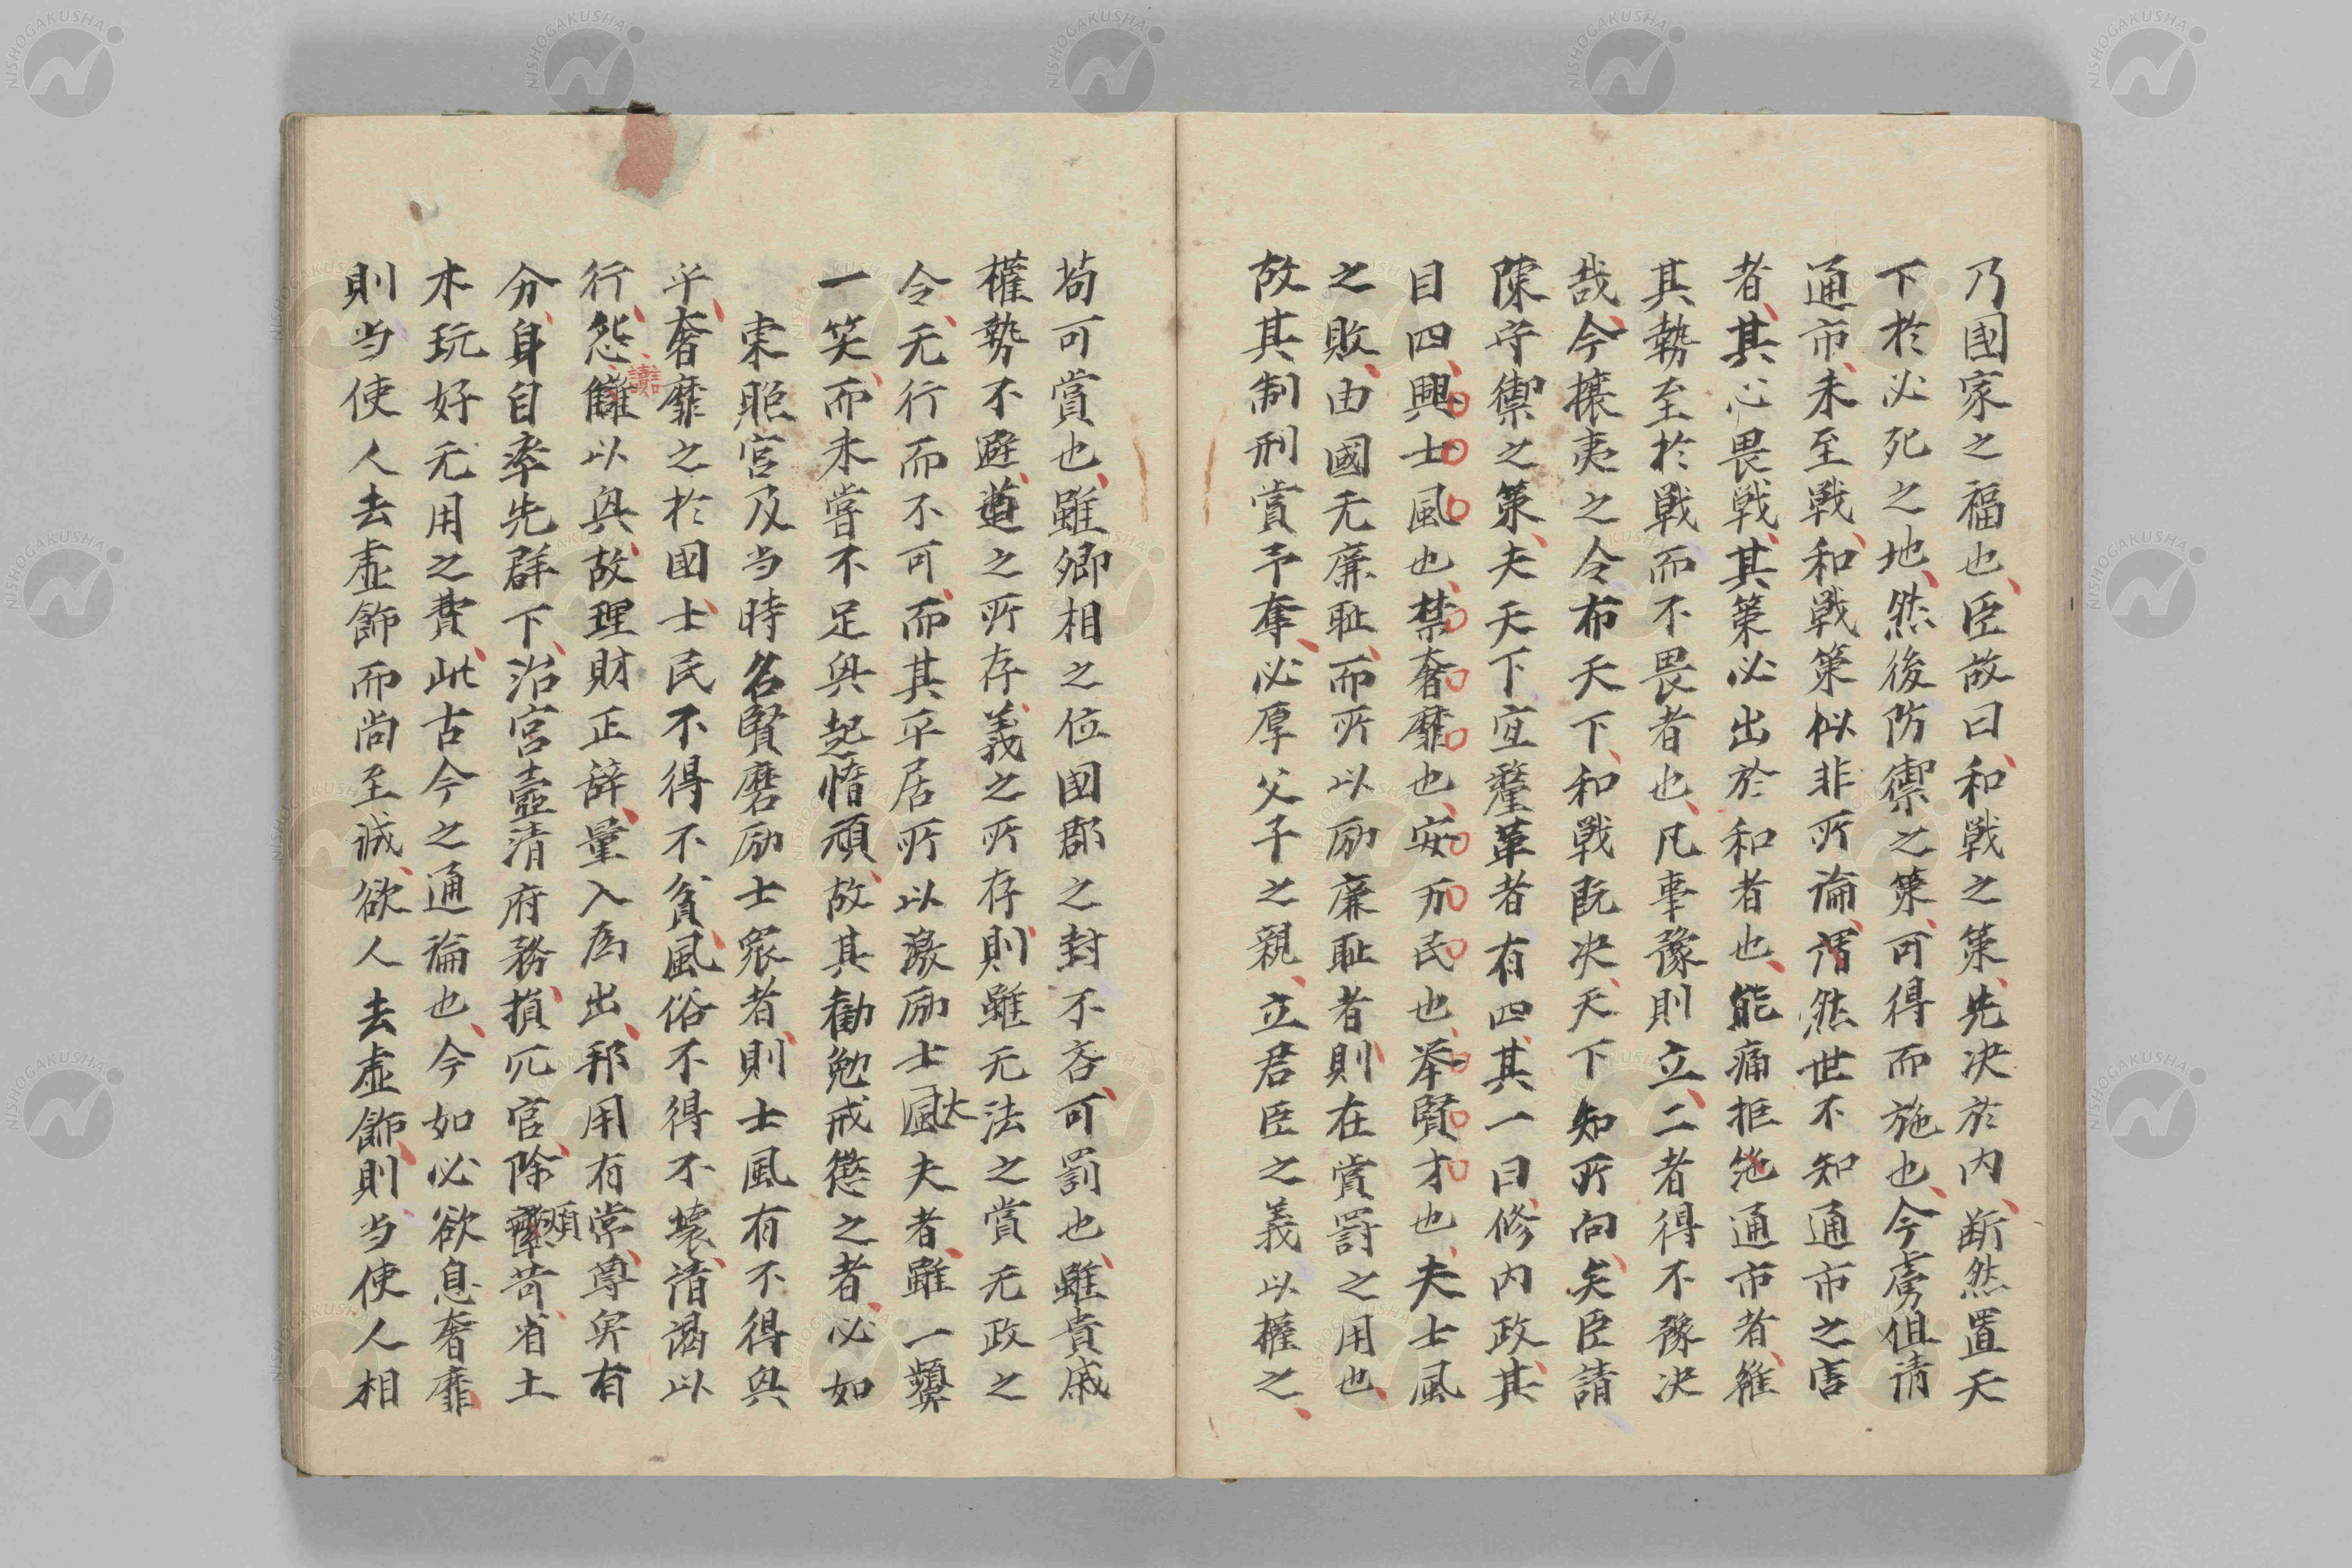 乃國家之福也臣故曰和戦之策先决於内断然置天
下於必死之地然後防禦之策可得而施也今虜伹请
通市未至戦和戦策似非所論謂然世不知通市之害
者其心畏戦其策必出於和者也能痛拒絶通市者雖
其勢至於戦而不畏者也凡事豫則立二者得不豫决
哉今攘夷之令布天下和戦既决天下知所向矣臣請
陳守禦之策夫天下宜釐革者有四其一曰修内政其
目四興士風也禁奢靡也安万民也举賢才也夫士風
之敗由國无廉耻而所以励廉耻者則在賞罰之用也
故其制刑賞予奪必厚父子之親立君臣之義以權之
苟可賞也雖卿相之位國郡之封不吝可罰也雖貴戚
權勢不避道之所存義之所存則雖无法之賞无政之
令无行而不可而其平居所以激励士風大夫者雖一顰
一笑而未嘗不足與起惰頑故其勸勉戒懲之者必如
東照宮及当時名賢磨励士衆者則士風有不得與
乎奢靡之於國士民不得不貧風俗不得不壊請謁以
行怨讎以與故理財正辞量入為出邦用有常尊卑有
讟
分身自率先群下治宮壼清府務損冗官除煩苛省土
木玩好无用之費此古今之通論也今如必欲息奢靡
則当使人去虚飾而尚至誠欲人去虚飾則当使人相
NISHOGAKUSHA